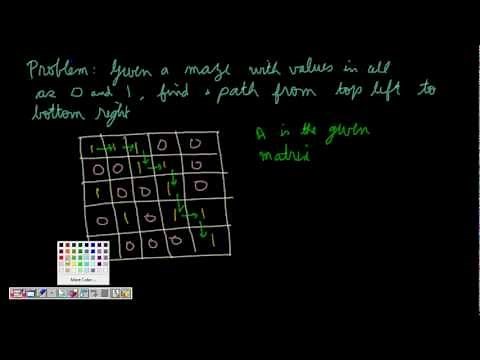 Problem: Given a maze with values in all
as 0 and 1, find a path from top left to
bottom right
A is the given
matrix
1 → 1 → 1 0 0
0 0 1 → 1 0
1 0 0 1 0
0 1 0 1 → 1
0 0 0 1
More Colors...